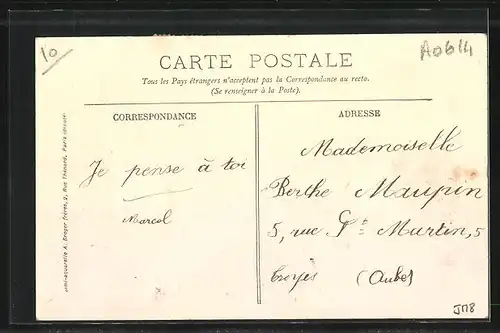 10
A0614
CARTE POSTALE
Tous les Pays étrangers n'acceptent pas la Correspondance au recto.
(Se renseigner à la Poste).
CORRESPONDANCE
Je pense à toi
Marcel
ADRESSE
Mademoiselle
Berthe Maupin
5, rue St Martin, 5
Troyes (Aube)
JM8
A. Breger frères, 9, Rue Thénard, Paris